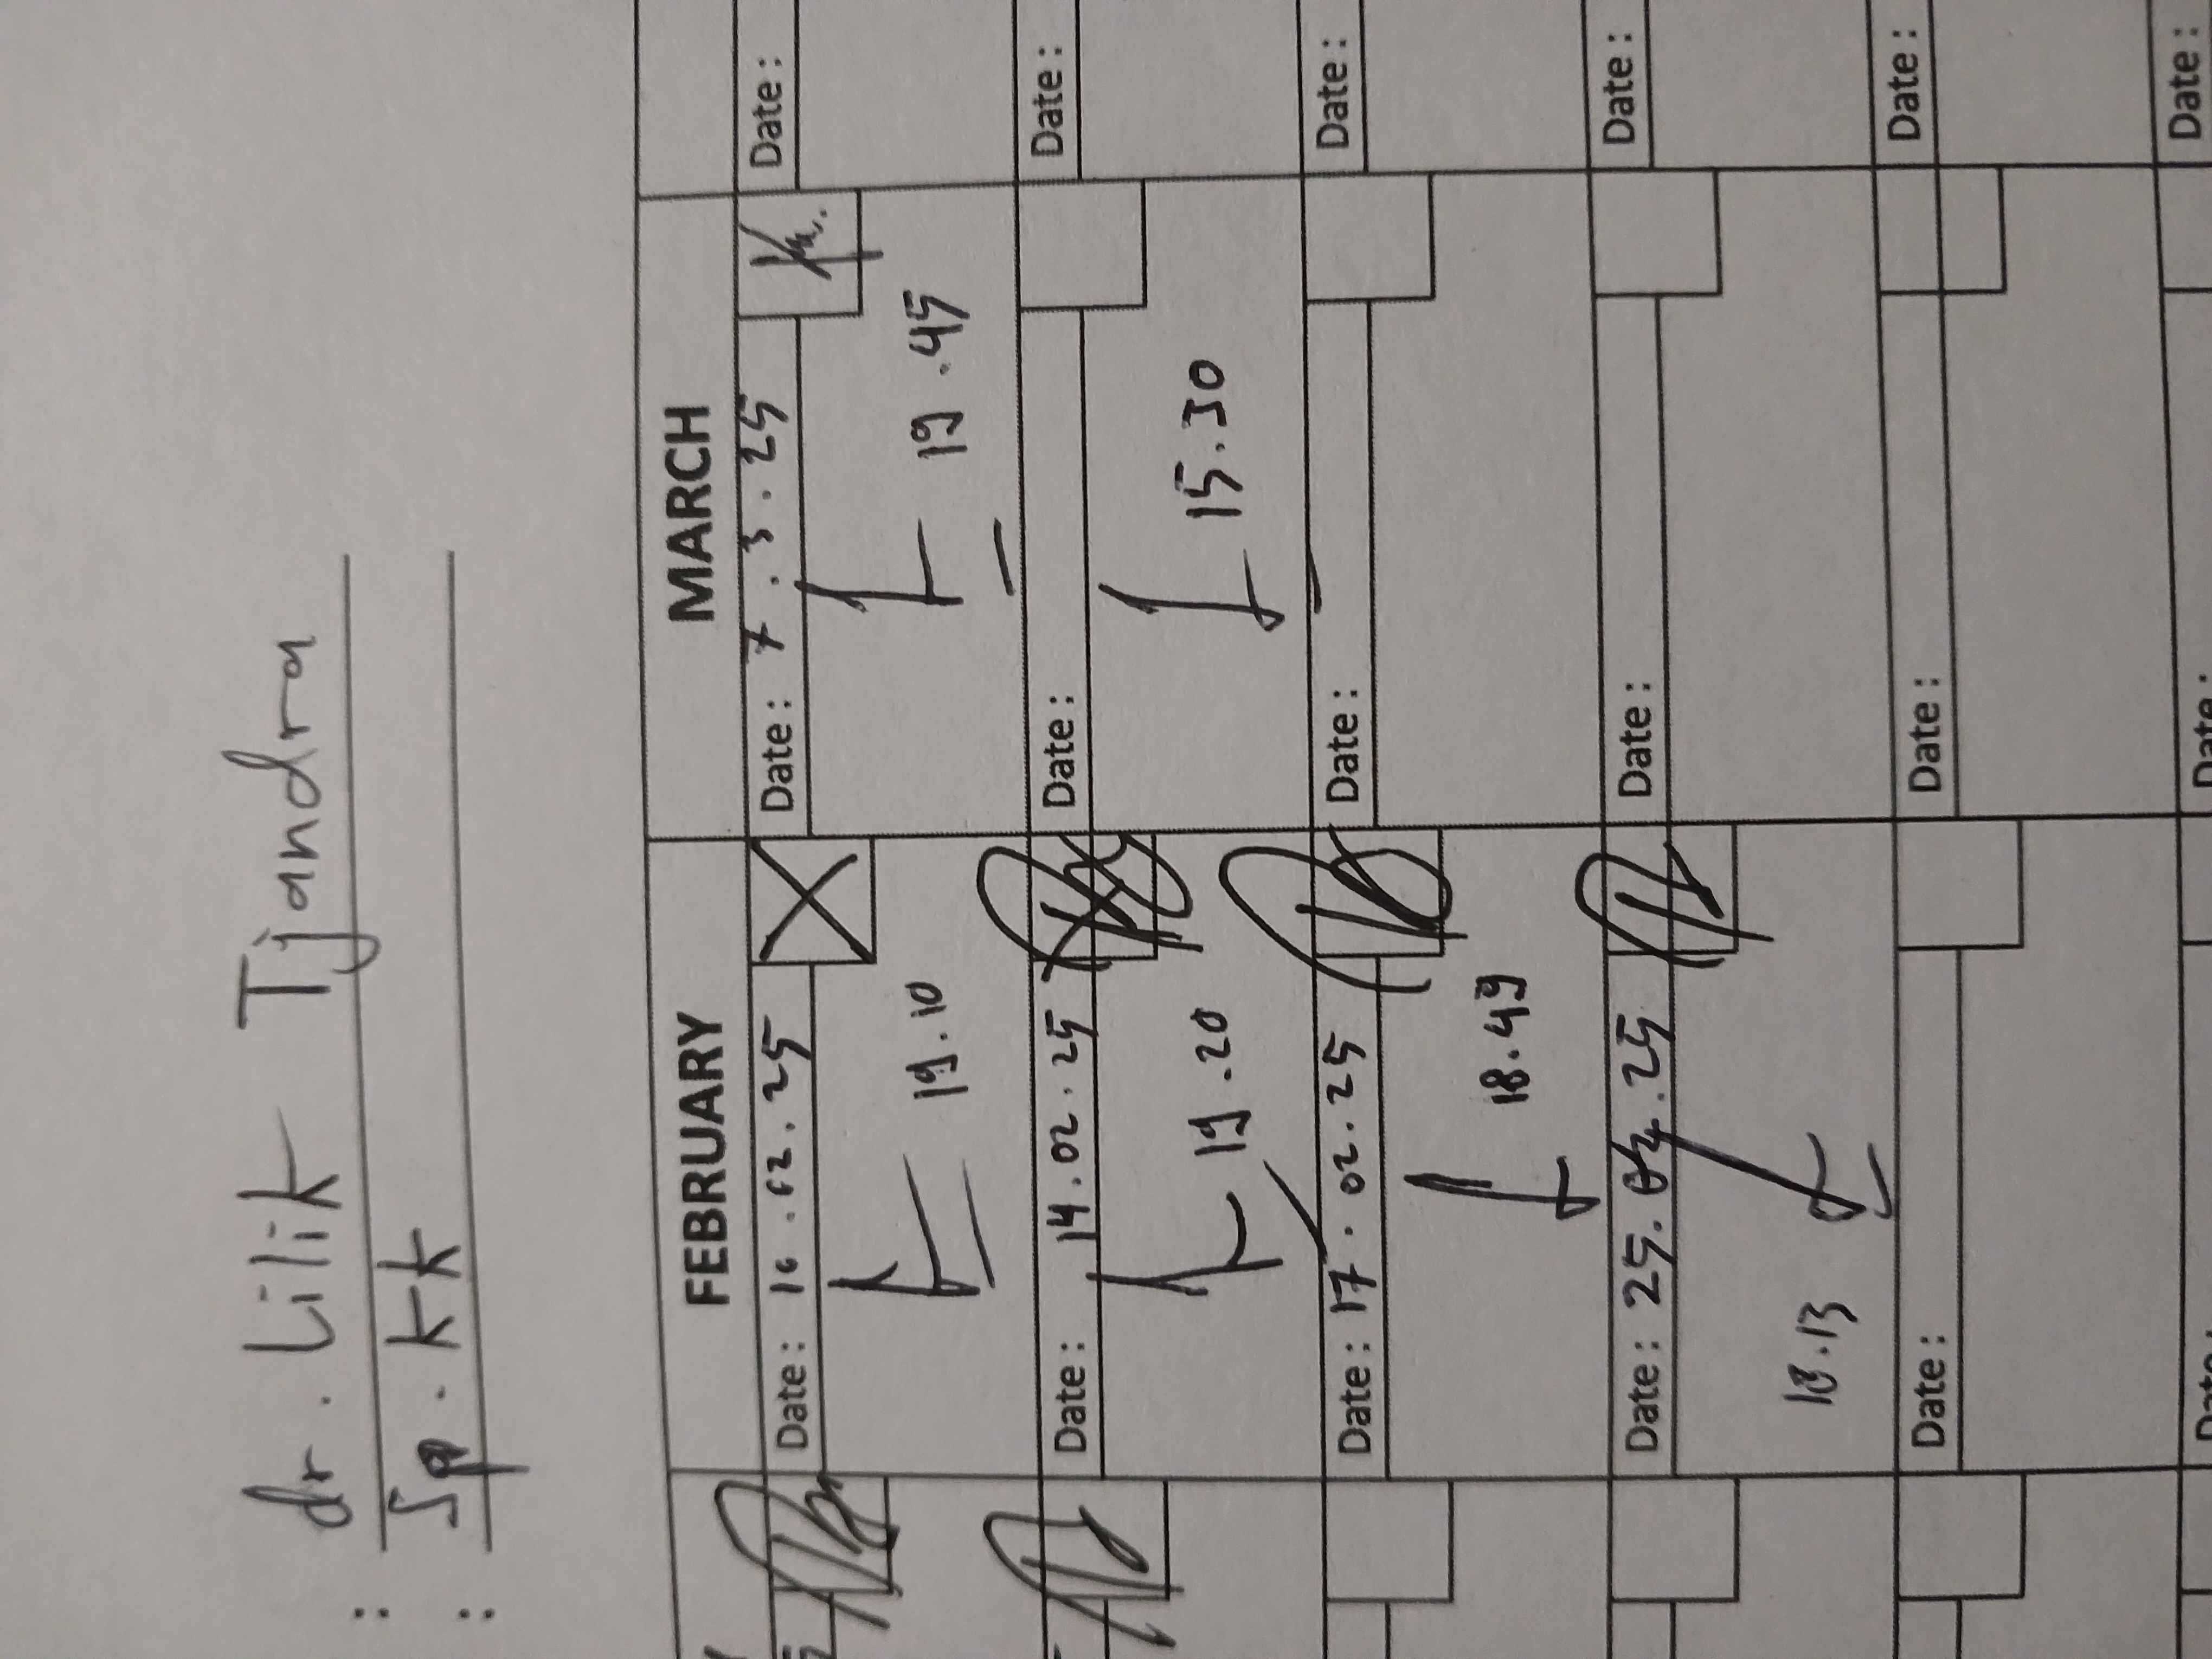 : dr. Lilik Tjandra
: Sp. KK
FEBRUARY MARCH
Date: 10.02.25 Date: 7.3.25 Date:
19.10 19.45
Date: 14.02.25 Date: Date:
19.20 15.30
Date: 17.02.25 Date: Date:
18.49
Date: 25.02.25 Date: Date:
18.13
Date: Date: Date:
Date: Date: Date: